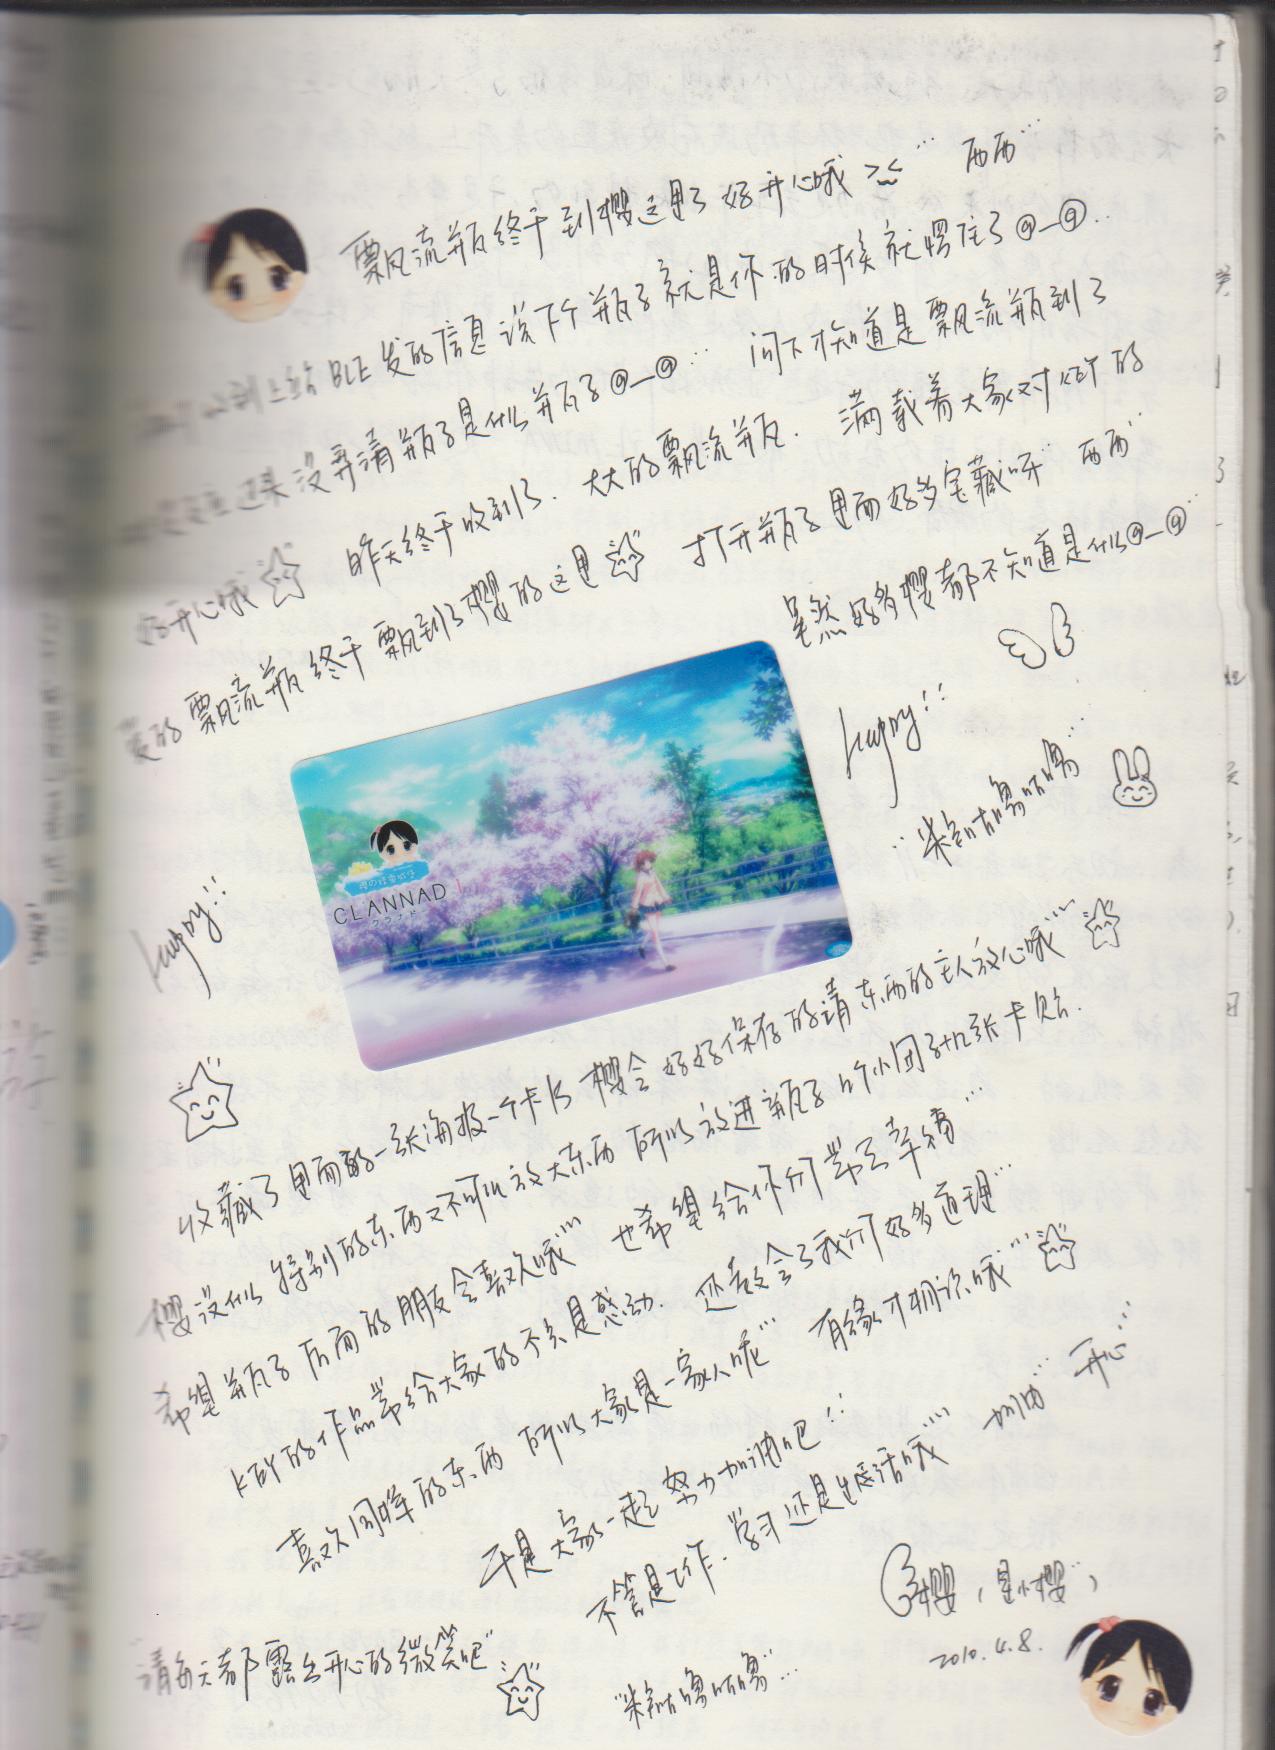 飘流瓶终于到樱这里了 好开心哦 >﹏< … 西西…
到上给BLE发的信息 说下个瓶子就是你的时候就愣住了@_@..
过来没弄清瓶子是什么瓶子@_@… 问下才知道是飘流瓶到了
好开心哦 昨天终于收到了. 大大的飘流瓶. 满载着大家对KEY的
爱的飘流瓶终于飘到了樱的这里 打开瓶子里面好多宝藏呀 西西…
虽然好多樱都不知道是什么@_@…
happy!!
CLANNAD
クラナド
happy!!
收藏了里面的一张海报一个卡片 樱会好好保存的请东西的主人放心哦
樱没什么特别的东西又不可以放大东西 所以放进瓶子 小团子 张卡贴.
希望瓶子后面的朋友会喜欢哦 也希望给你们带去幸福…
KEY的作品带给大家的不只是感动. 还教会了我们好多道理…
喜欢同样的东西 所以大家是一家人呢 有缘才相识哦
于是大家一起努力加油吧!!
不管是工作. 学习还是生活哦 加油… 开心…
樱, 星小樱
2010.4.8.
"请每天都露出开心的微笑吧"